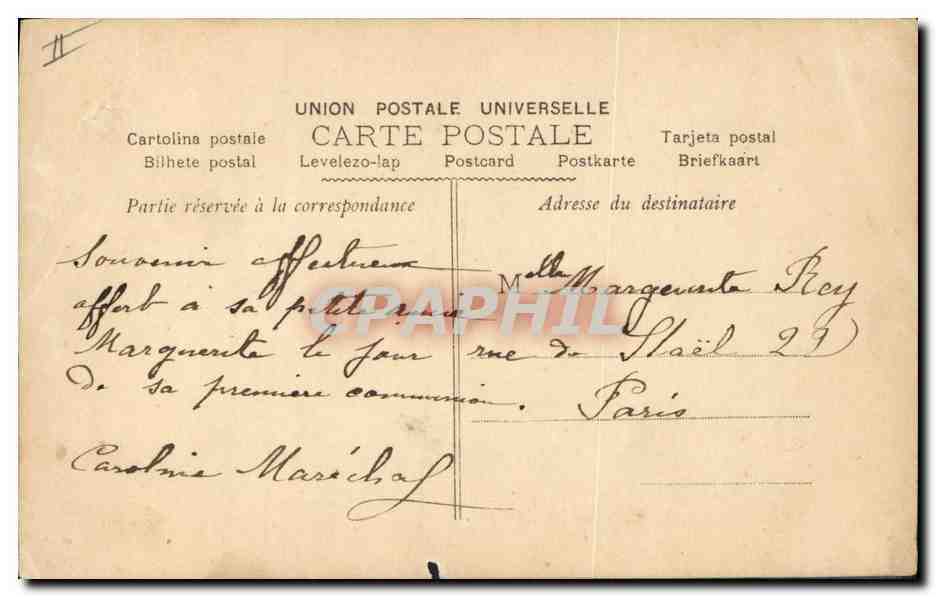 II
UNION POSTALE UNIVERSELLE
CARTE POSTALE
Cartolina postale
Tarjeta postal
Bilhete postal Levelezo-lap Postcard Postkarte Briefkaart
Partie réservée à la correspondance
Souvenir affectueux
offert à sa petite amie
Marguerite le jour
de sa première communion.
Caroline Maréchal
Adresse du destinataire
Melle Marguerite Rey
rue de Staël 29
Paris
CPAPHIL